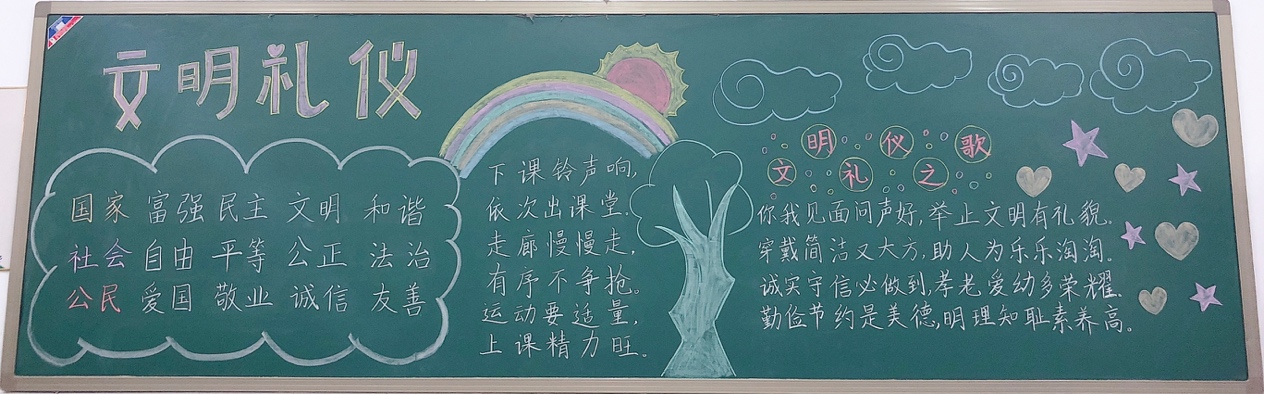 文明礼仪
国家 富强 民主 文明 和谐
社会 自由 平等 公正 法治
公民 爱国 敬业 诚信 友善
下课铃声响,
依次出课堂.
走廊慢慢走,
有序不争抢。
运动要适量,
上课精力旺。
文明礼仪之歌
你我见面问声好,举止文明有礼貌。
穿戴简洁又大方,助人为乐乐淘淘。
诚实守信必做到,孝老爱幼多荣耀.
勤俭节约是美德,明理知耻素养高。